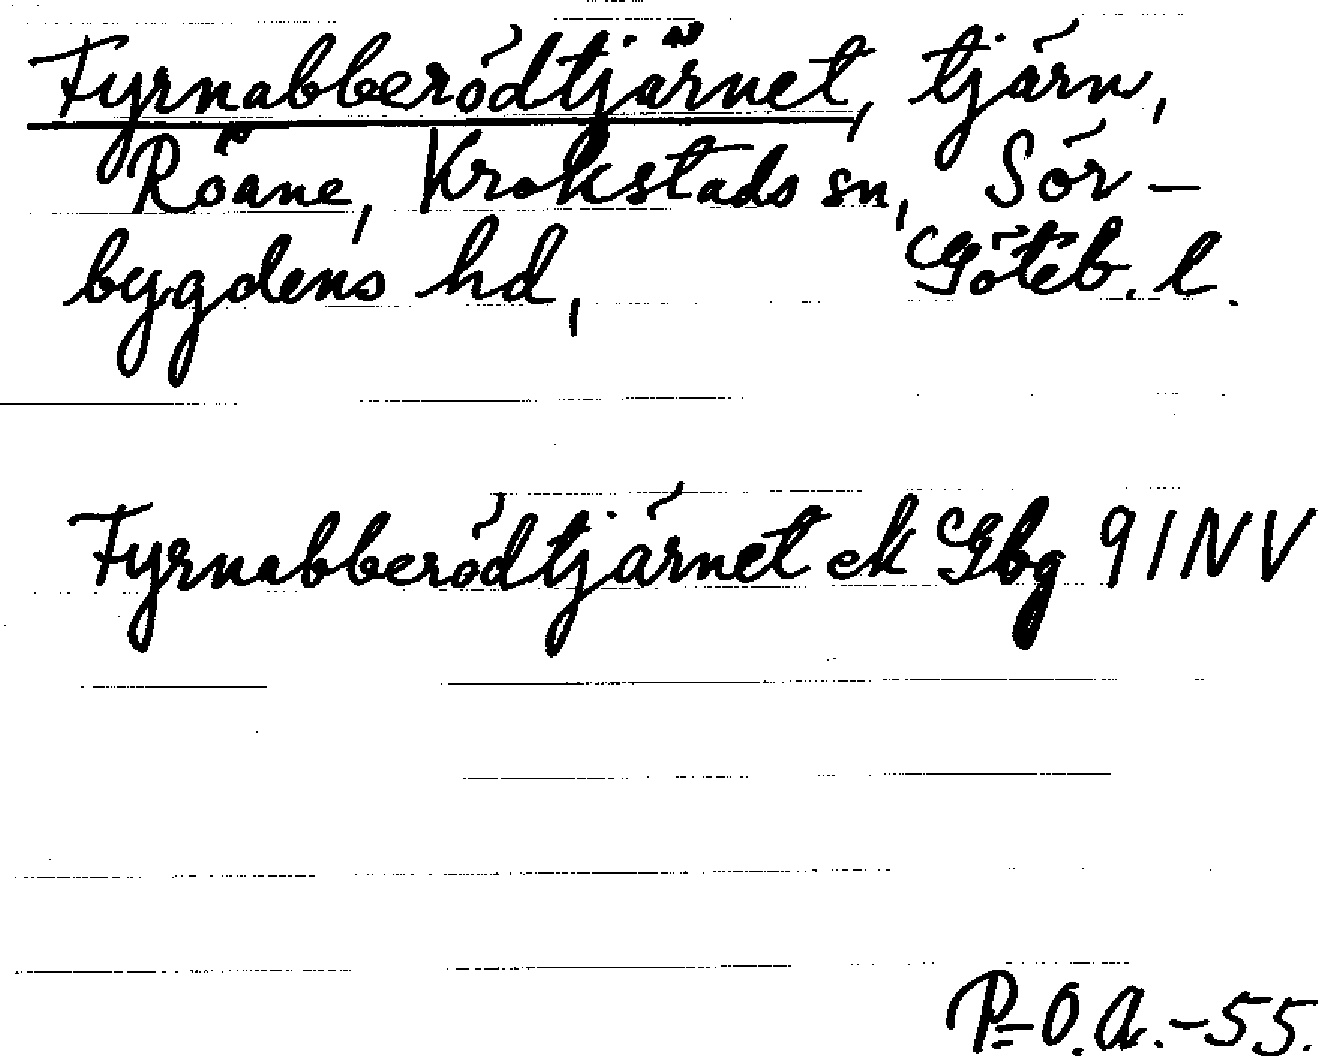 Fyrnabberödtjärnet, tjärn,
Röane, Krokstads sn, Sör-
bygdens hd, Göteb. l.
Fyrnabberödtjärnet ek Gbg 91NV
P-O.A.-55.